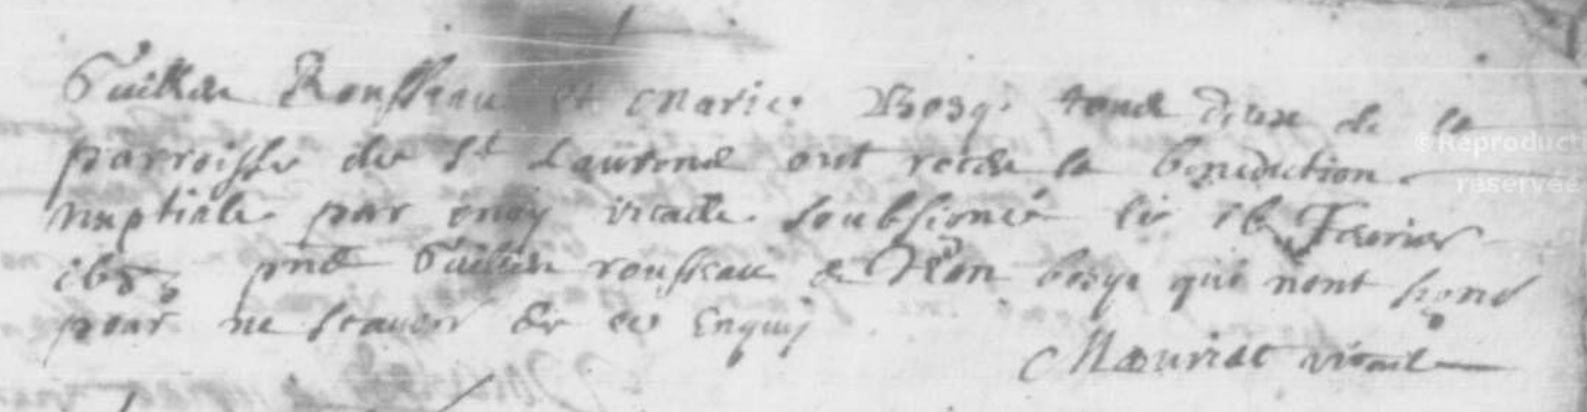 Guillem Rousseau et Marie Bosq. tous deux de la
parroisse de St Laurens ont receu la benediction
nuptiale par moy vicaire soubsigné le 16 Feurier
pnt Guillem rousseau & Jean bosq qui nont signé
pour ne scauoir de ce Enquis
Mauriac vicaire
©Reproduct
réservée